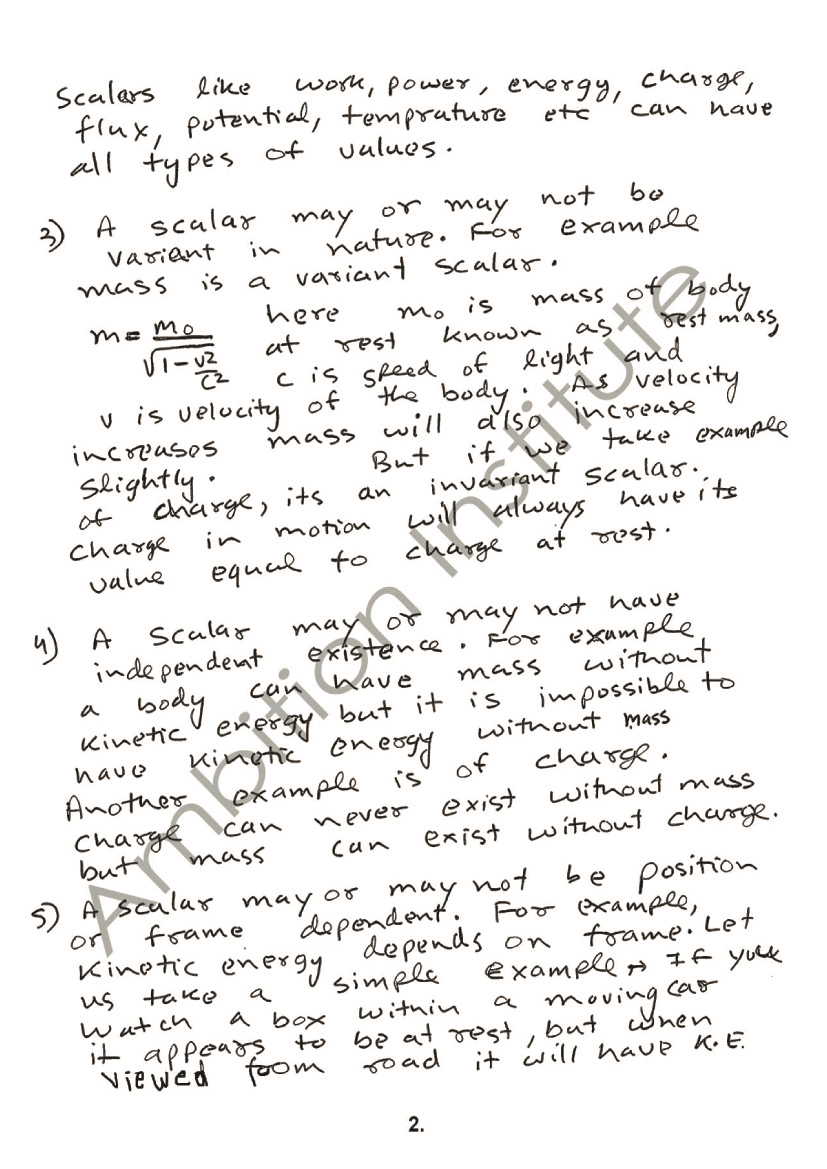 Scalars like work, power, energy, charge,
flux, potential, temprature etc can have
all types of values.
3) A scalar may or may not be
variant in nature. For example
mass is a variant scalar.
m = m0 / √(1 - v2/c2) here m0 is mass of body
at rest known as rest mass,
c is speed of light and
v is velocity of the body. As velocity
increases mass will also increase
slightly. But if we take example
of charge, its an invariant scalar.
charge in motion will always have its
value equal to charge at rest.
4) A scalar may or may not have
independent existence. For example
a body can have mass without
kinetic energy but it is impossible to
have kinetic energy without mass
Another example is of charge.
charge can never exist without mass
but mass can exist without charge.
5) A scalar may or may not be position
or frame dependent. For example,
kinetic energy depends on frame. Let
us take a simple example → If you
watch a box within a moving car
it appears to be at rest, but when
viewed from road it will have K.E.
2.
Ambition Institute